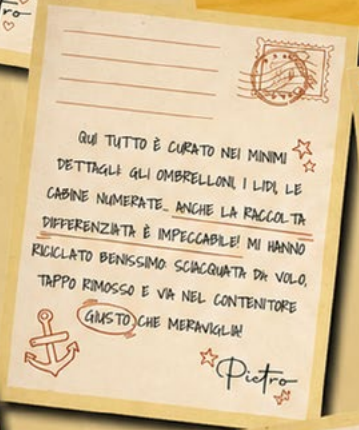 tro
QUI TUTTO È CURATO NEI MINIMI
DETTAGLI: GLI OMBRELLONI, I LIDI, LE
CABINE NUMERATE... ANCHE LA RACCOLTA
DIFFERENZIATA È IMPECCABILE! MI HANNO
RICICLATO BENISSIMO: SCIACQUATA DA VOLO,
TAPPO RIMOSSO E VIA NEL CONTENITORE
GIUSTO CHE MERAVIGLIA!
Pietro